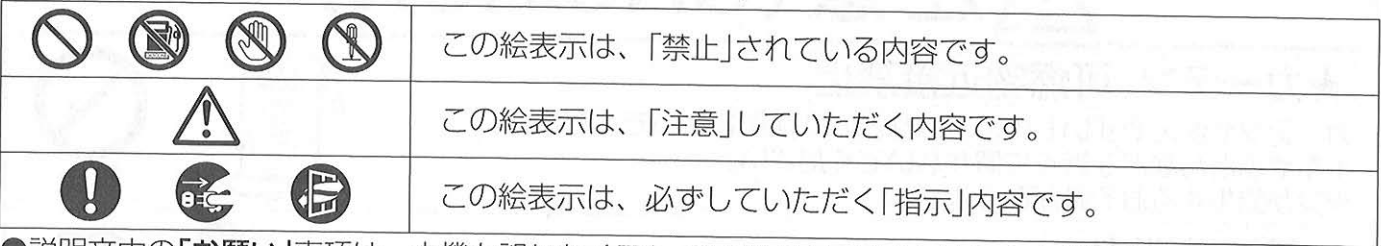 この絵表示は、「禁止」されている内容です。
この絵表示は、「注意」していただく内容です。
この絵表示は、必ずしていただく「指示」内容です。
●説明文中の「お願い」事項は、本機を誤